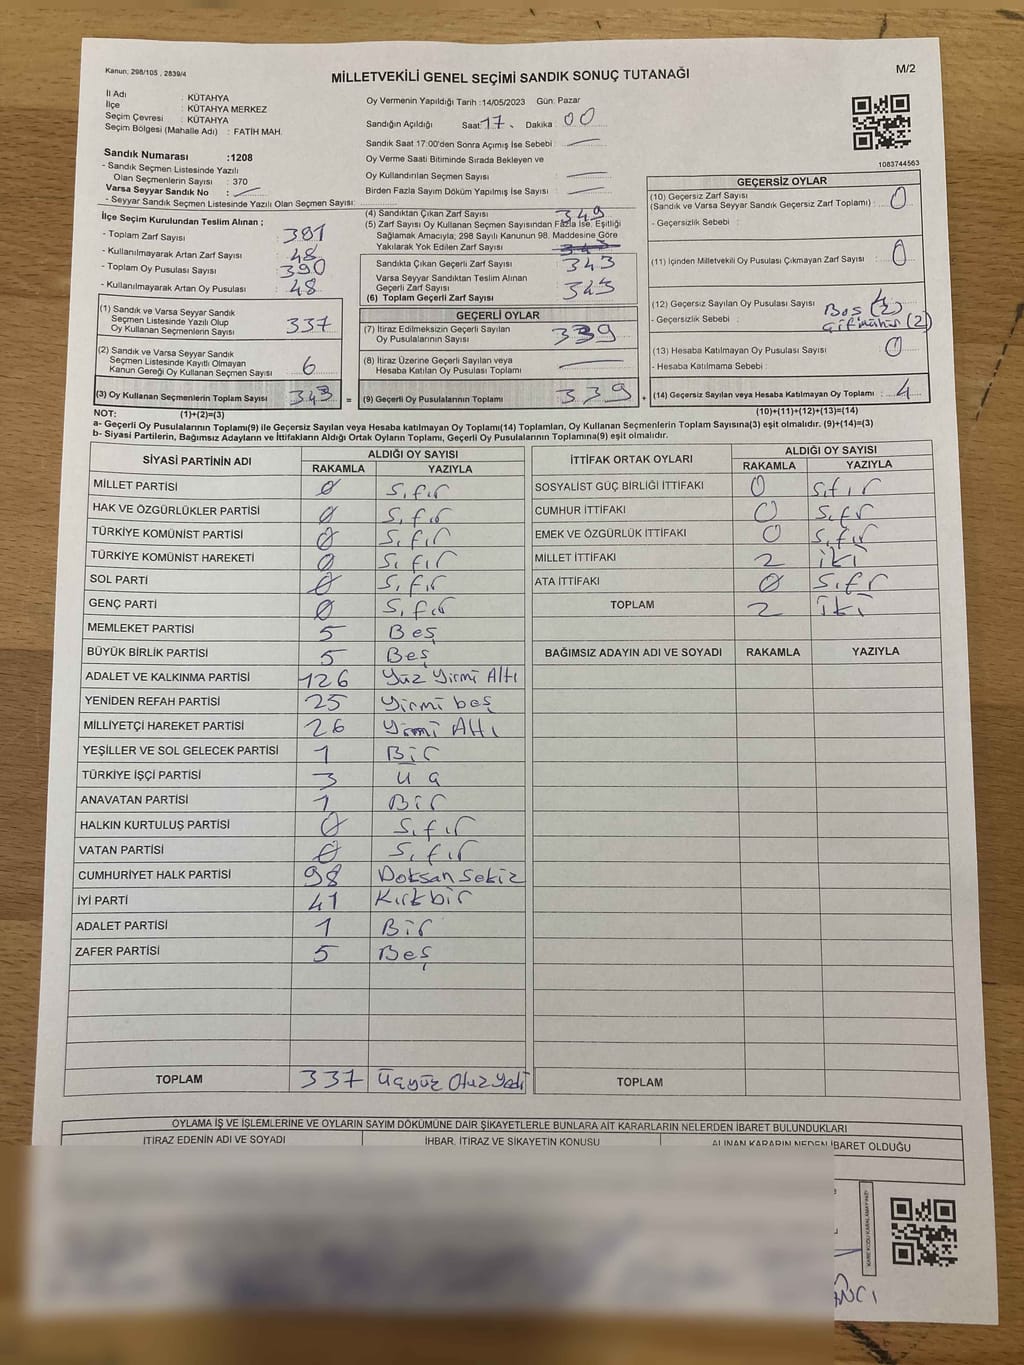 Kanun: 298/105 , 2839/4
MİLLETVEKİLİ GENEL SEÇİMİ SANDIK SONUÇ TUTANAĞI
M/2
İl Adı : KÜTAHYA
İlçe : KÜTAHYA MERKEZ
Seçim Çevresi : KÜTAHYA
Seçim Bölgesi (Mahalle Adı) : FATİH MAH.
Oy Vermenin Yapıldığı Tarih :14/05/2023 Gün: Pazar
Sandığın Açıldığı Saat: 17 Dakika : 00
Sandık Saat 17:00'den Sonra Açımış İse Sebebi : —
Oy Verme Saati Bitiminde Sırada Bekleyen ve
Oy Kullandırılan Seçmen Sayısı : —
Birden Fazla Sayım Döküm Yapılmış İse Sayısı : —
1083744563
Sandık Numarası :1208
- Sandık Seçmen Listesinde Yazılı
Olan Seçmenlerin Sayısı : 370
Varsa Seyyar Sandık No : —
- Seyyar Sandık Seçmen Listesinde Yazılı Olan Seçmen Sayısı:
İlçe Seçim Kurulundan Teslim Alınan ;
- Toplam Zarf Sayısı : 391
- Kullanılmayarak Artan Zarf Sayısı : 48
- Toplam Oy Pusulası Sayısı : 390
- Kullanılmayarak Artan Oy Pusulası : 48
(1) Sandık ve Varsa Seyyar Sandık
Seçmen Listesinde Yazılı Olup
Oy Kullanan Seçmenlerin Sayısı : 337
(2) Sandık ve Varsa Seyyar Sandık
Seçmen Listesinde Kayıtlı Olmayan
Kanun Gereği Oy Kullanan Seçmen Sayısı : 6
(3) Oy Kullanan Seçmenlerin Toplam Sayısı : 343 =
(4) Sandıktan Çıkan Zarf Sayısı : 343
(5) Zarf Sayısı Oy Kullanan Seçmen Sayısından Fazla İse, Eşitliği
Sağlamak Amacıyla, 298 Sayılı Kanunun 98. Maddesine Göre
Yakılarak Yok Edilen Zarf Sayısı :
Sandıkta Çıkan Geçerli Zarf Sayısı : 343
Varsa Seyyar Sandıktan Teslim Alınan
Geçerli Zarf Sayısı
(6) Toplam Geçerli Zarf Sayısı : 343
GEÇERLİ OYLAR
(7) İtiraz Edilmeksizin Geçerli Sayılan
Oy Pusulalarının Sayısı : 339
(8) İtiraz Üzerine Geçerli Sayılan veya
Hesaba Katılan Oy Pusulası Toplamı : —
(9) Geçerli Oy Pusulalarının Toplamı : 339 +
GEÇERSİZ OYLAR
(10) Geçersiz Zarf Sayısı
(Sandık ve Varsa Seyyar Sandık Geçersiz Zarf Toplamı) : 0
- Geçersizlik Sebebi :
(11) İçinden Milletvekili Oy Pusulası Çıkmayan Zarf Sayısı : 0
(12) Geçersiz Sayılan Oy Pusulası Sayısı : 4
- Geçersizlik Sebebi : Boş (2)
Çift mühür (2)
(13) Hesaba Katılmayan Oy Pusulası Sayısı : 0
- Hesaba Katılmama Sebebi :
(14) Geçersiz Sayılan veya Hesaba Katılmayan Oy Pusulası Toplamı : 4
NOT: (1)+(2)=(3) (10)+(11)+(12)+(13)=(14)
a- Geçerli Oy Pusulalarının Toplamı(9) ile Geçersiz Sayılan veya Hesaba katılmayan Oy Pusulası Toplamı(14) Toplamları, Oy Kullanan Seçmenlerin Toplam Sayısına(3) eşit olmalıdır. (9)+(14)=(3)
b- Siyasi Partilerin, Bağımsız Adayların ve İttifakların Aldığı Ortak Oyların Toplamı, Geçerli Oy Pusulalarının Toplamına(9) eşit olmalıdır.
SİYASİ PARTİNİN ADI ALDIĞI OY SAYISI
RAKAMLA YAZIYLA
MİLLET PARTİSİ 0 Sıfır
HAK VE ÖZGÜRLÜKLER PARTİSİ 0 Sıfır
TÜRKİYE KOMÜNİST PARTİSİ 0 Sıfır
TÜRKİYE KOMÜNİST HAREKETİ 0 Sıfır
SOL PARTİ 0 Sıfır
GENÇ PARTİ 0 Sıfır
MEMLEKET PARTİSİ 5 Beş
BÜYÜK BİRLİK PARTİSİ 5 Beş
ADALET VE KALKINMA PARTİSİ 126 Yüz Yirmi Altı
YENİDEN REFAH PARTİSİ 25 Yirmi beş
MİLLİYETÇİ HAREKET PARTİSİ 26 Yirmi Altı
YEŞİLLER VE SOL GELECEK PARTİSİ 1 Bir
TÜRKİYE İŞÇİ PARTİSİ 3 Üç
ANAVATAN PARTİSİ 1 Bir
HALKIN KURTULUŞ PARTİSİ 0 Sıfır
VATAN PARTİSİ 0 Sıfır
CUMHURİYET HALK PARTİSİ 98 Doksan Sekiz
İYİ PARTİ 41 Kırk bir
ADALET PARTİSİ 1 Bir
ZAFER PARTİSİ 5 Beş
TOPLAM 337 Üçyüz Otuz Yedi
İTTİFAK ORTAK OYLARI ALDIĞI OY SAYISI
RAKAMLA YAZIYLA
SOSYALİST GÜÇ BİRLİĞİ İTTİFAKI 0 Sıfır
CUMHUR İTTİFAKI 0 Sıfır
EMEK VE ÖZGÜRLÜK İTTİFAKI 0 Sıfır
MİLLET İTTİFAKI 2 İki
ATA İTTİFAKI 0 Sıfır
TOPLAM 2 İki
BAĞIMSIZ ADAYIN ADI VE SOYADI RAKAMLA YAZIYLA
TOPLAM
OYLAMA İŞ VE İŞLEMLERİNE VE OYLARIN SAYIM DÖKÜMÜNE DAİR ŞİKAYETLERLE BUNLARA AİT KARARLARIN NELERDEN İBARET BULUNDUKLARI
İTİRAZ EDENİN ADI VE SOYADI İHBAR, İTİRAZ VE ŞİKAYETİN KONUSU ALINAN KARARIN NEDEN İBARET OLDUĞU
KARE KODU KARALAMAYINIZ!